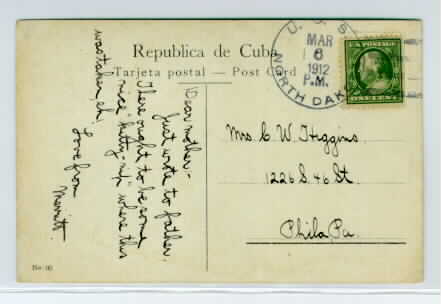 Republica de Cuba
Tarjeta postal — Post Card
U. S. S.
MAR
6
1912
P.M.
NORTH DAK
U.S. POSTAGE
Dear mother -
Just wrote to father.
There ought to be some
nice "kitty-nip" where this
was taken, eh.
Love from
Merritt.
Mrs C W Higgins
1226 S. 46 St.
Phila, Pa.